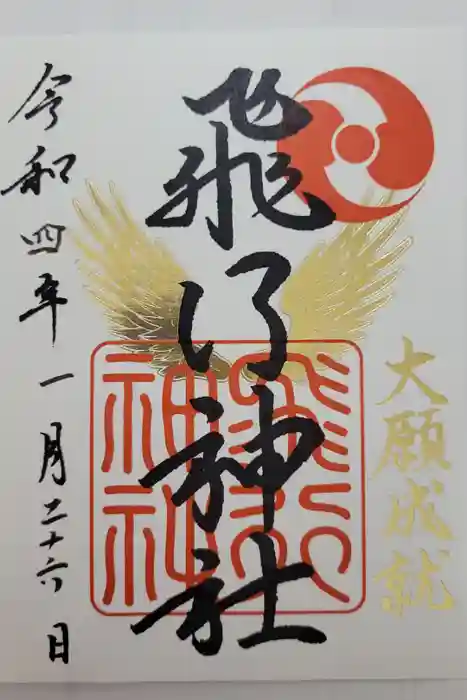 大願成就
飛行神社
飛行神社
令和四年一月二十六日